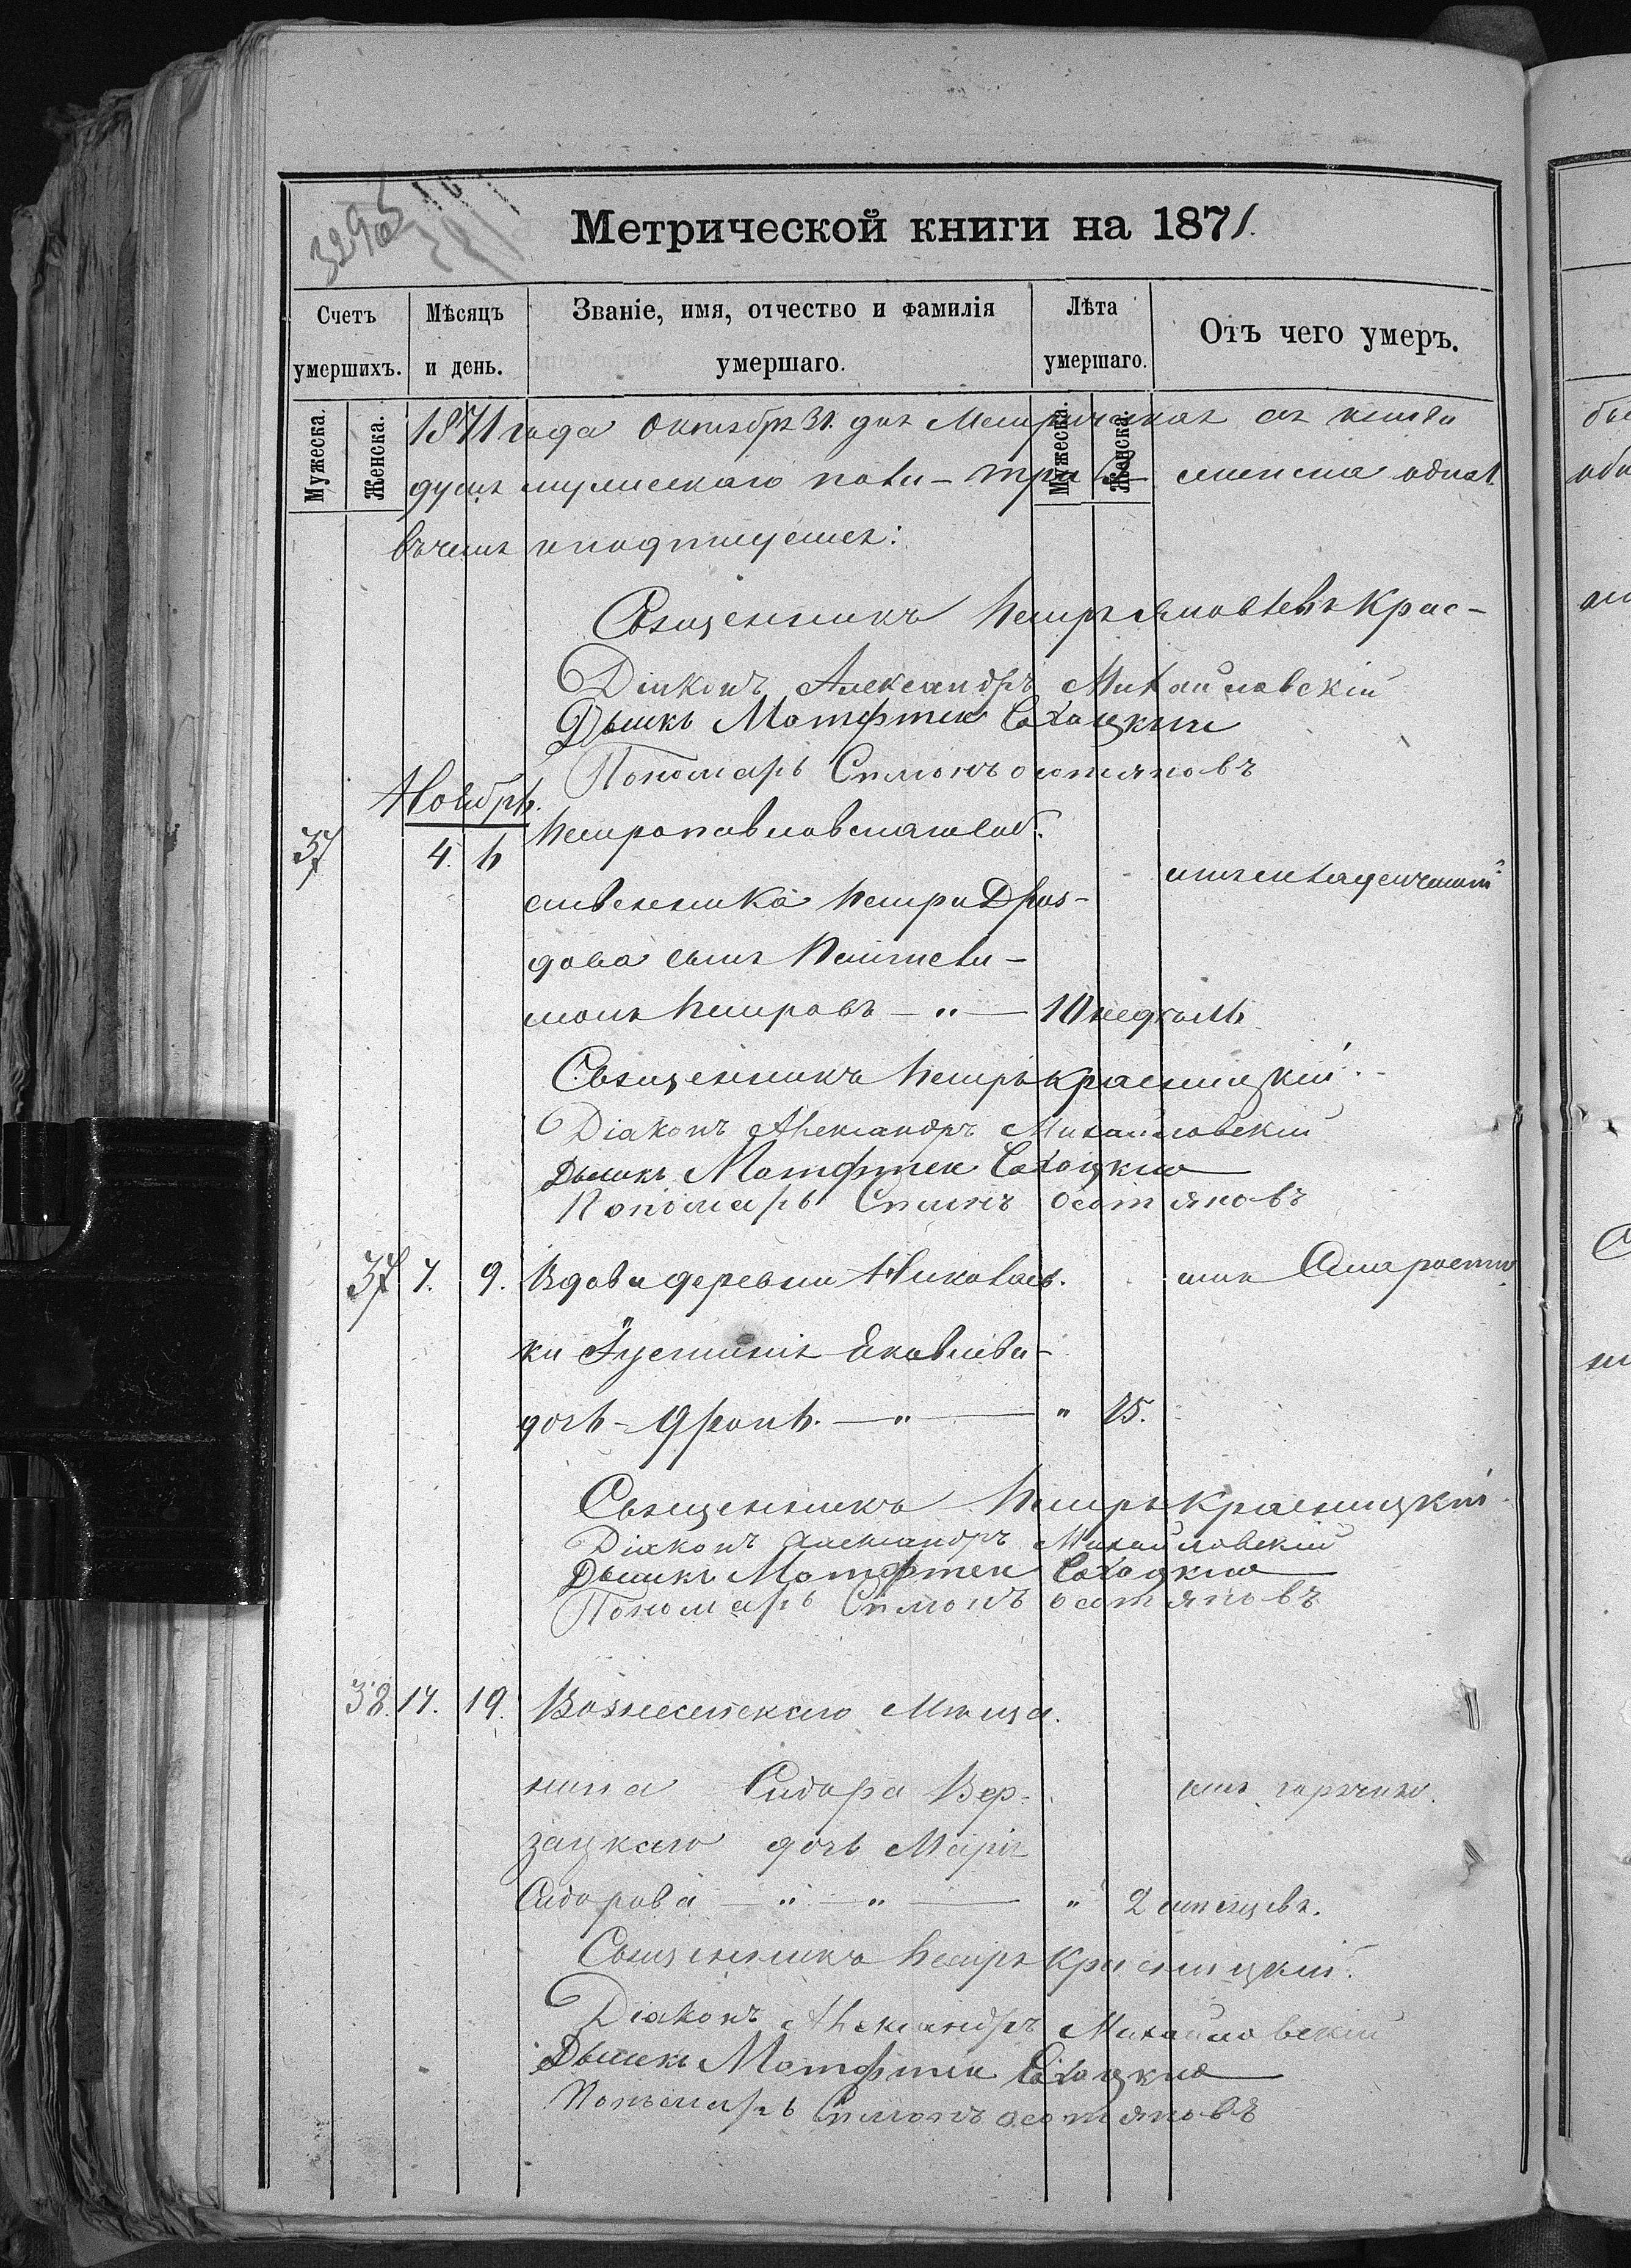 329
Метрической книги на 1871.
Счетъ умершихъ.
Мѣсяцъ и день.
Званіе, имя, отчество и фамилія умершаго.
Лѣта умершаго.
Отъ чего умеръ.
Мужеска.
Женска.
Мужеска.
Женска.
1871 года Октября 31. дня Метрическая сія книга
душъ мужескаго пола – три женска одна
въ чемъ и подпишемся:
Священникъ Петръ Крас-
Діаконъ Александръ Михайловскій
Дьячкъ Матфтеи Сахацкии
Пономарь Симонъ остяковъ
Ноябрь.
37 4. 6 Петропавловска
ственника Петра Дроз-
отъ младенческой
дова сынъ Пантеле-
монъ Петровъ — " — 10 недѣль
Священникъ Петръ Красницкій.
Діаконъ Александръ Михайловскій
Дьячкъ Матфтеи Сахацкии
Пономарь Симонъ остяковъ
37 7. 9. Вдова деревни Николаев. отъ Старости
ки Іустинія Яковлева
дочь — " — " 85.
Священникъ Петръ Красницкій.
Діаконъ Александръ Михайловскій
Дьячкъ Матфтеи Сахацкии
Пономарь Симонъ остяковъ
38. 17. 19. Вознесенскаго Мѣща.
нина Сидора Вер- отъ горячки.
зацкаго дочь Марія
Сидорова — " — " — " 2 мѣсяцевъ.
Священникъ Петръ Красницкій.
Діаконъ Александръ Михайловскій
Дьячкъ Матфтеи Сахацкии
Пономарь Симонъ остяковъ